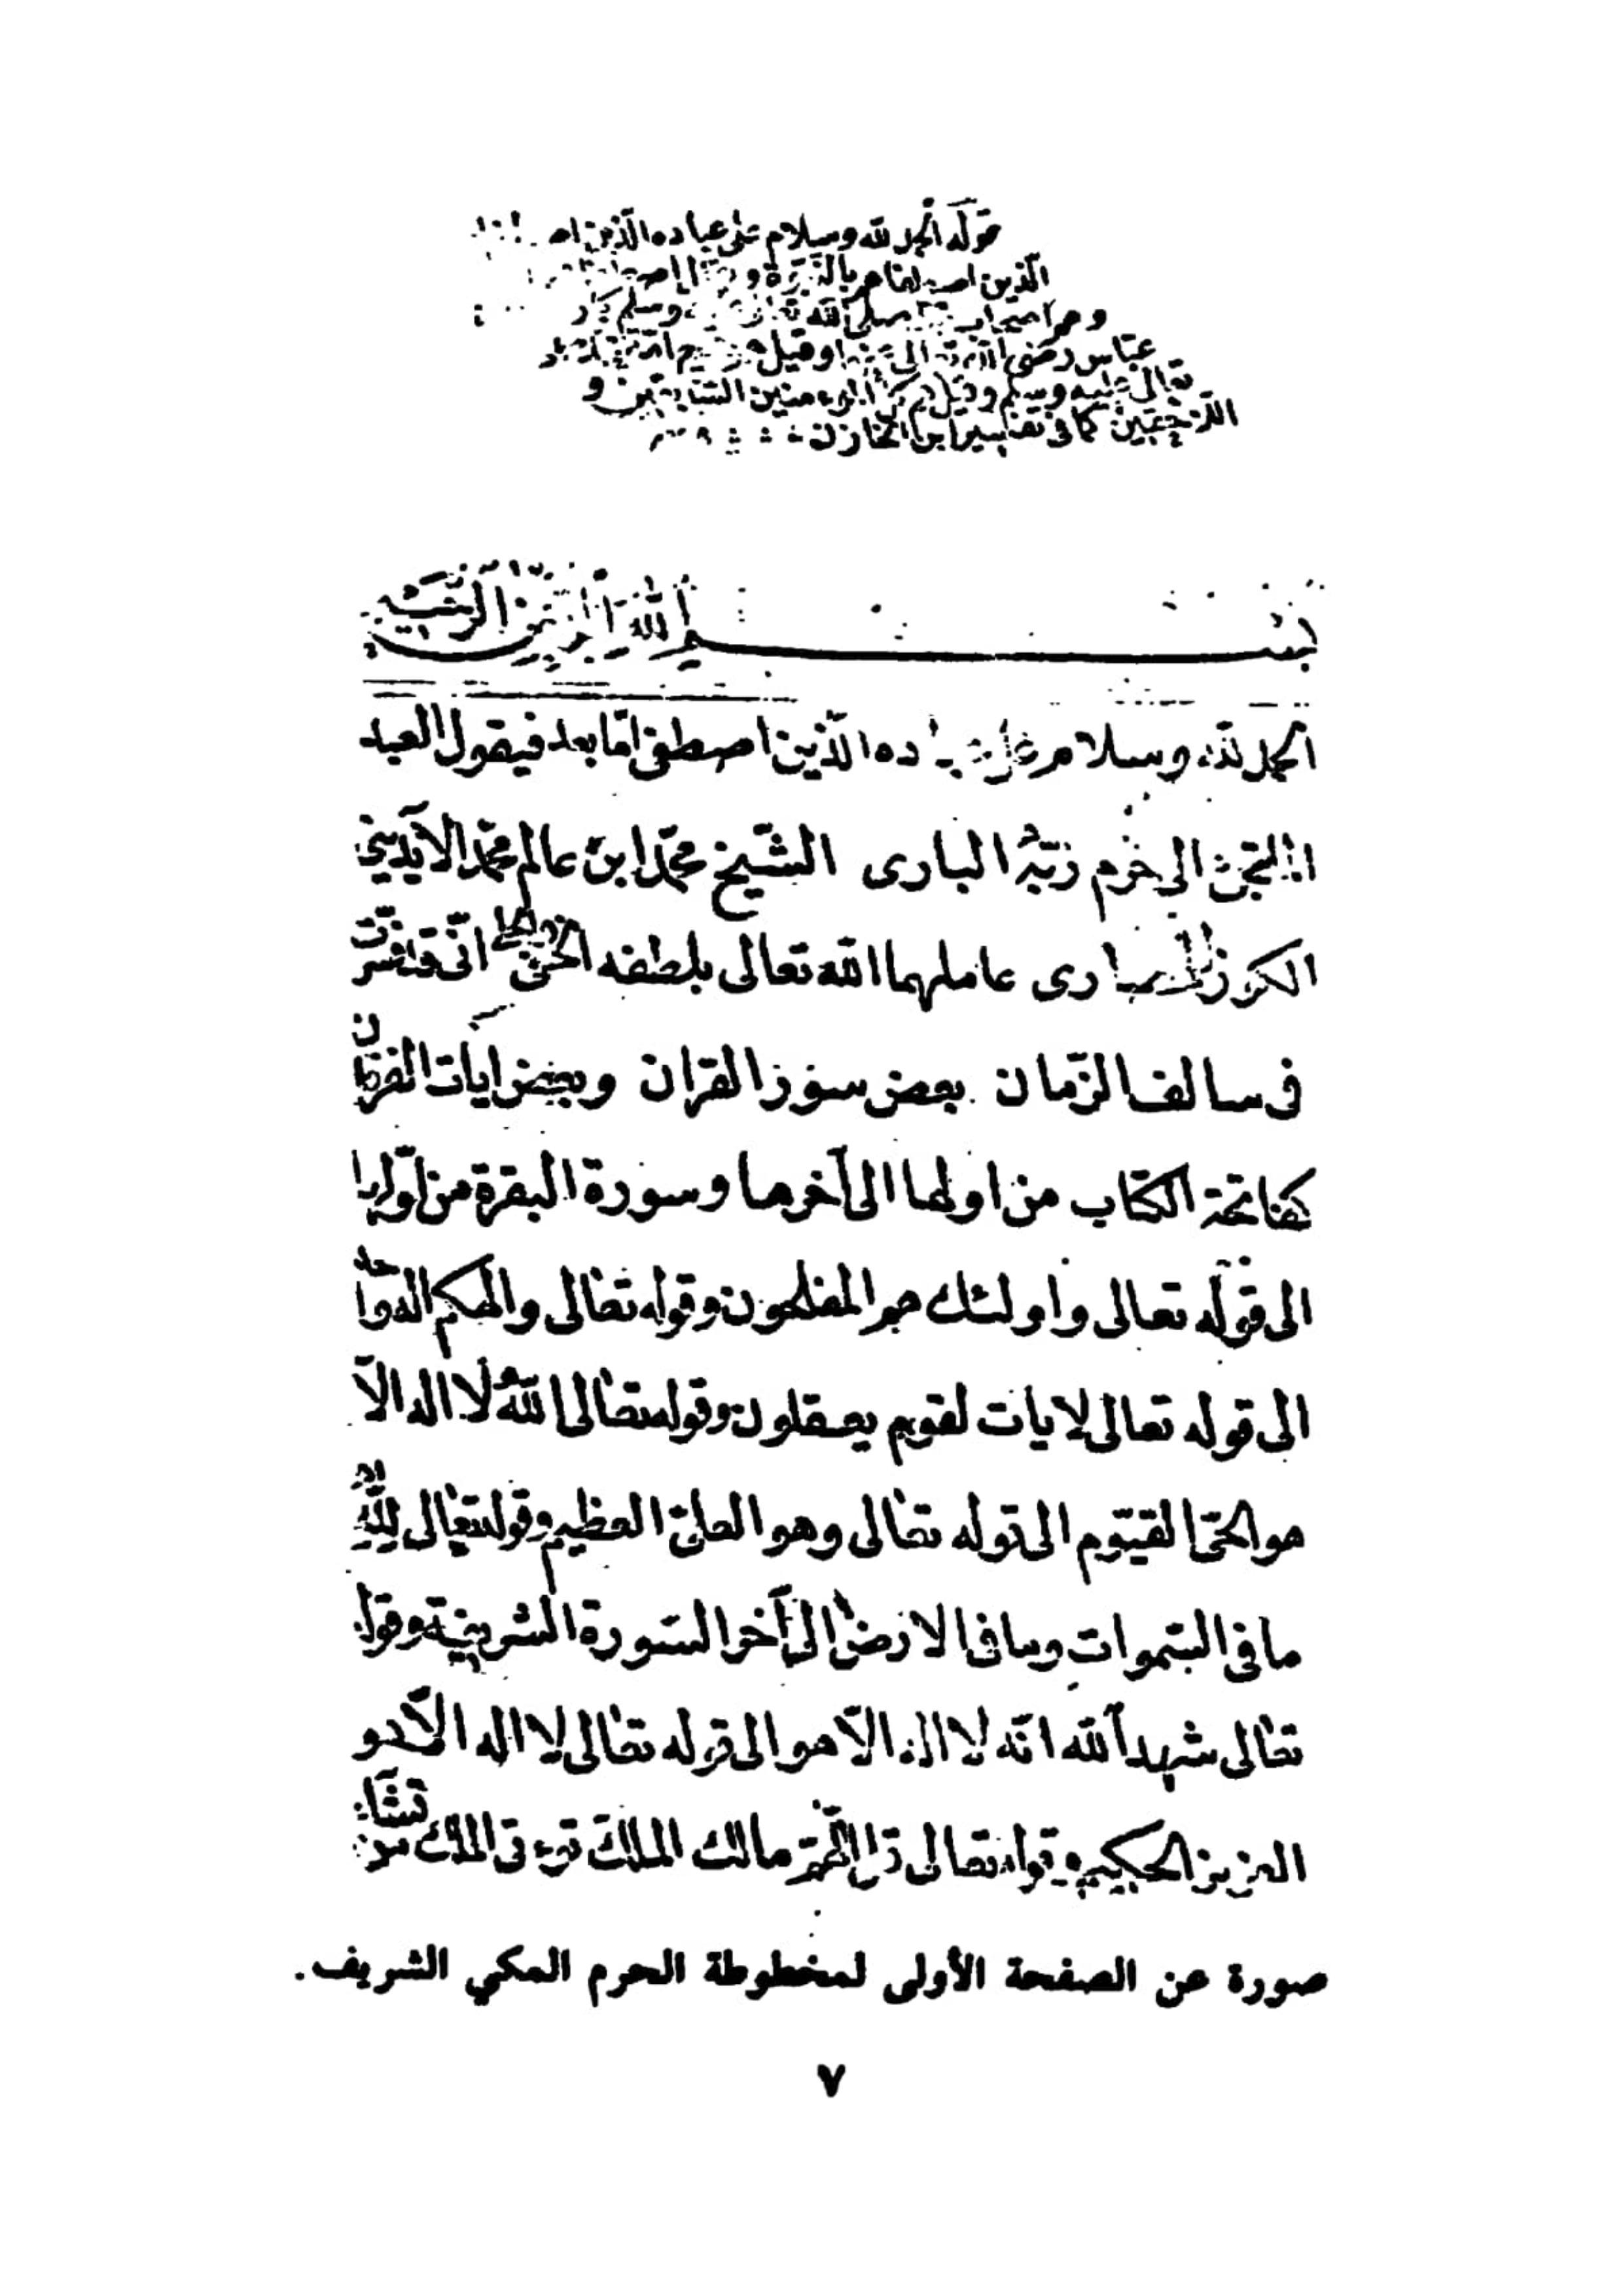 قوله الحمد لله وسلام على عباده الذين
الذين
وهم اصحاب صلى الله وسلم
عباس رضى وقيل
تعالى عليه وسلم وقيل
كما فى تفسير ابن الخازن
بسم الله الرحمن الرحيم
الحمد لله وسلام على عباده الذين اصطفى امّا بعد فيقول العبد
الى حرم ربّه البارى الشّيخ محمّد ابن عالم محمّد الآيديني
عاملهما الله تعالى بلطفه الخفىّ والجلى انّى قد فسّرت
فى سالف الزّمان بعض سور القران وبعض ايات الفرقان
كفاتحة الكتاب من اولها الى آخرها وسورة البقرة من اوّلها
الى قوله تعالى واولئك هم المفلحون وقوله تعالى والهكم اله واحد
الى قوله تعالى لايات لقوم يعقلون وقوله تعالى الله لا اله الاّ
هو الحىّ القيّوم الى قوله تعالى وهو العلىّ العظيم وقوله تعالى لله
ما فى السّموات وما فى الارض الى آخر السّورة الشريفة وقوله
تعالى شهد الله انّه لا اله الاّ هو الى قوله تعالى لا اله الاّ هو
العزيز الحكيم وقوله تعالى قل اللّهمّ مالك الملك تؤتى الملك من تشاء
صورة عن الصفحة الأولى لمخطوطة الحرم المكي الشريف.
٧